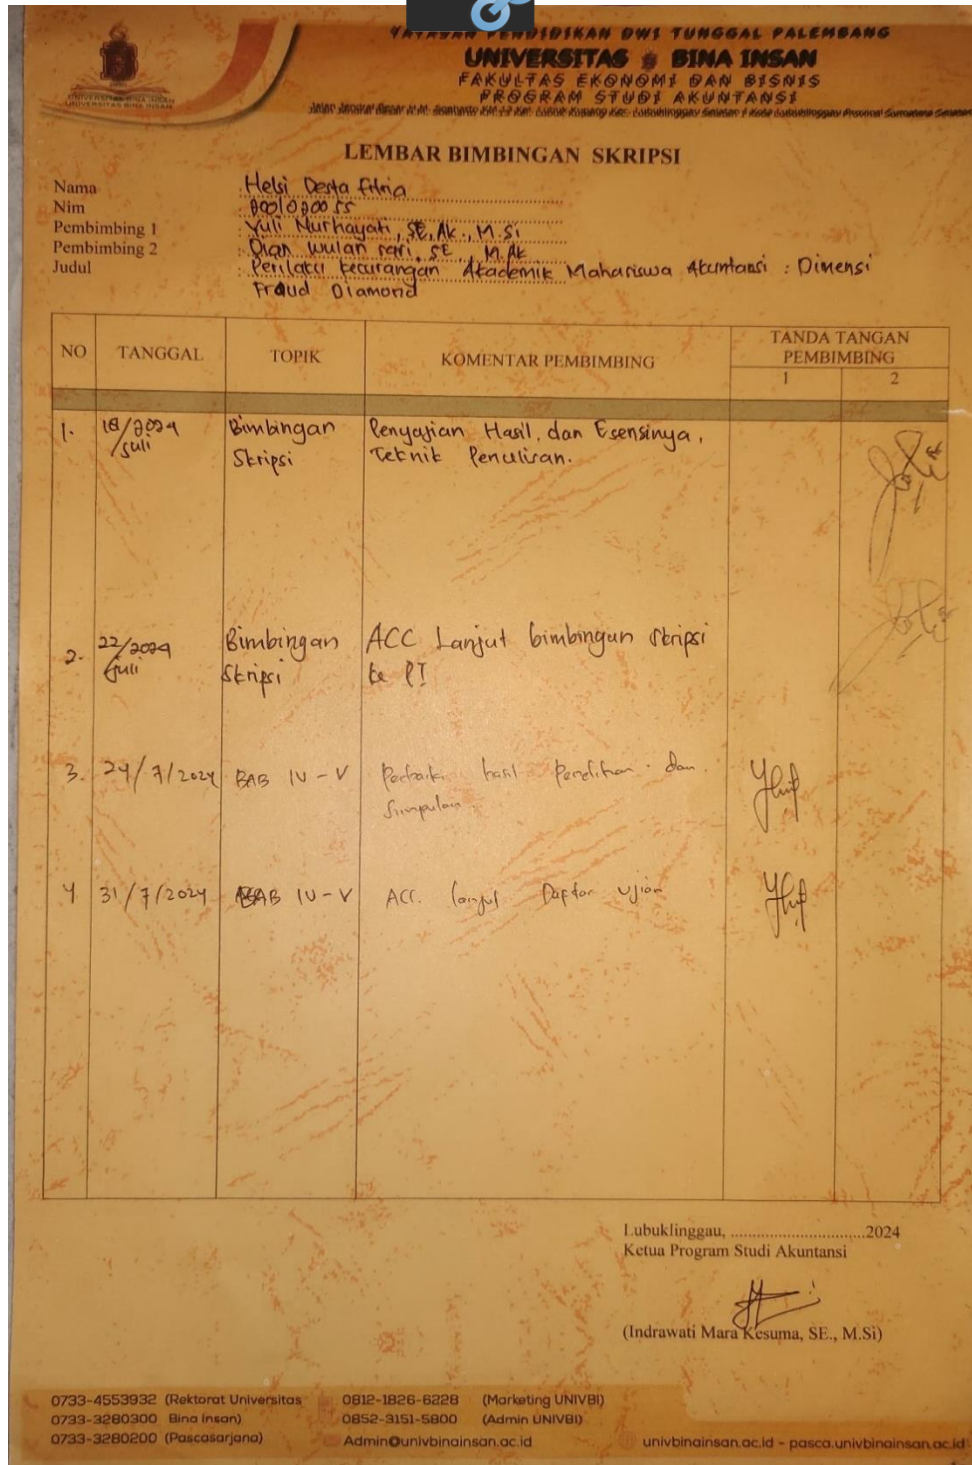 YAYASAN PENDIDIKAN DWI TUNGGAL PALEMBANG
UNIVERSITAS BINA INSAN
FAKULTAS EKONOMI DAN BISNIS
PROGRAM STUDI AKUNTANSI
UNIVERSITAS BINA INSAN
LEMBAR BIMBINGAN SKRIPSI
Nama : Helsi Desta Fitria
Nim :
Pembimbing 1 : Yuli Nurhayati, SE, Ak., M.Si
Pembimbing 2 : Dian Wulan Sari, SE., M.Ak
Judul : Perilaku Kecurangan Akademik Mahasiswa Akuntansi : Dimensi
Fraud Diamond
NO TANGGAL TOPIK KOMENTAR PEMBIMBING TANDA TANGAN PEMBIMBING
1 2
1. 18/2024 Bimbingan Penyajian Hasil, dan Esensinya,
Juli Skripsi Teknik Penulisan.
2. 22/2024 Bimbingan ACC Lanjut bimbingan skripsi
Juli Skripsi ke PI
3. 24/7/2024 BAB IV - V Perbaiki hasil penelitian dan
Simpulan
4 31/7/2024 BAB IV - V ACC. lanjut Daftar ujian
Lubuklinggau, ..............................2024
Ketua Program Studi Akuntansi
(Indrawati Mara Kesuma, SE., M.Si)
0733-4553932 (Rektorat Universitas 0812-1826-6228 (Marketing UNIVBI)
0733-3280300 Bina Insan) 0852-3151-5800 (Admin UNIVBI)
0733-3280200 (Pascasarjana) Admin@univbinainsan.ac.id univbinainsan.ac.id - pasca.univbinainsan.ac.id